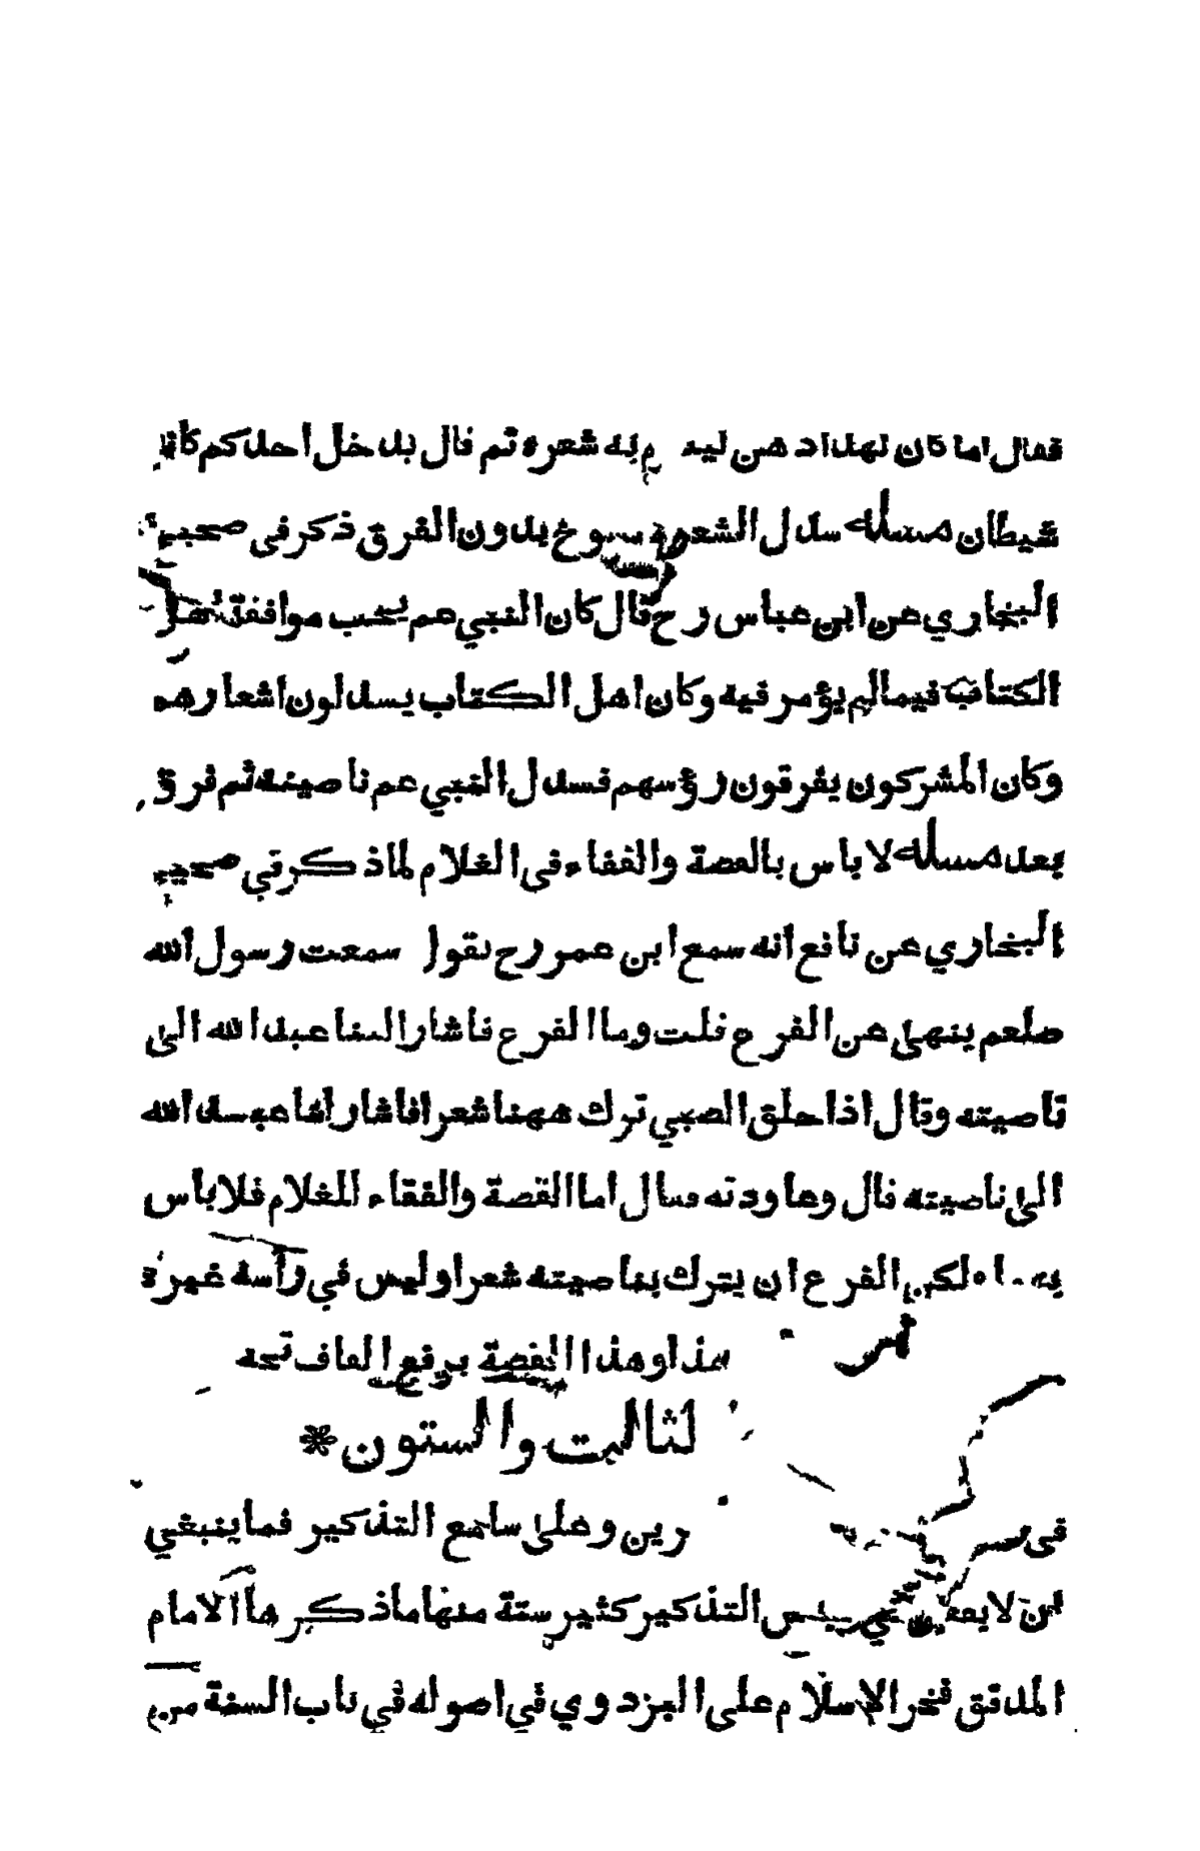 فقال اما كان لهذا دهن ليد م به شعره ثم قال يدخل احدكم كانه
شيطان مسئله سدل الشعر يسوغ بدون الفرق ذكر في صحيح
البخاري عن ابن عباس رح قال كان النبي عم يحب موافقة اهل
الكتاب فيما لم يؤمر فيه وكان اهل الكتاب يسدلون اشعارهم
وكان المشركون يفرقون رؤسهم فسدل النبي عم ناصيته ثم فرق
بعد مسئله لا باس بالقصة والقفاء في الغلام لما ذكر في صحيح
البخاري عن نافع انه سمع ابن عمر رح يقول سمعت رسول الله
صلعم ينهى عن القزع قلت وما القزع فاشار الينا عبد الله الى
ناصيته وقال اذا حلق الصبي ترك ههنا شعرا فاشار لنا عبيد الله
الى ناصيته قال وعاودته فقال اما القصة والقفاء للغلام فلا باس
به ولكن القزع ان يترك بناصيته شعرا وليس في راسه غيره
هذا وهذا القصة برفع القاف تحه
لثالث والستون *
في رين وعلى سامع التذكير فما ينبغي
ان لا التذكير كثير ستة منها ما ذكرها الامام
المدقق فخر الاسلام على البزدوي في اصوله في باب السنة من